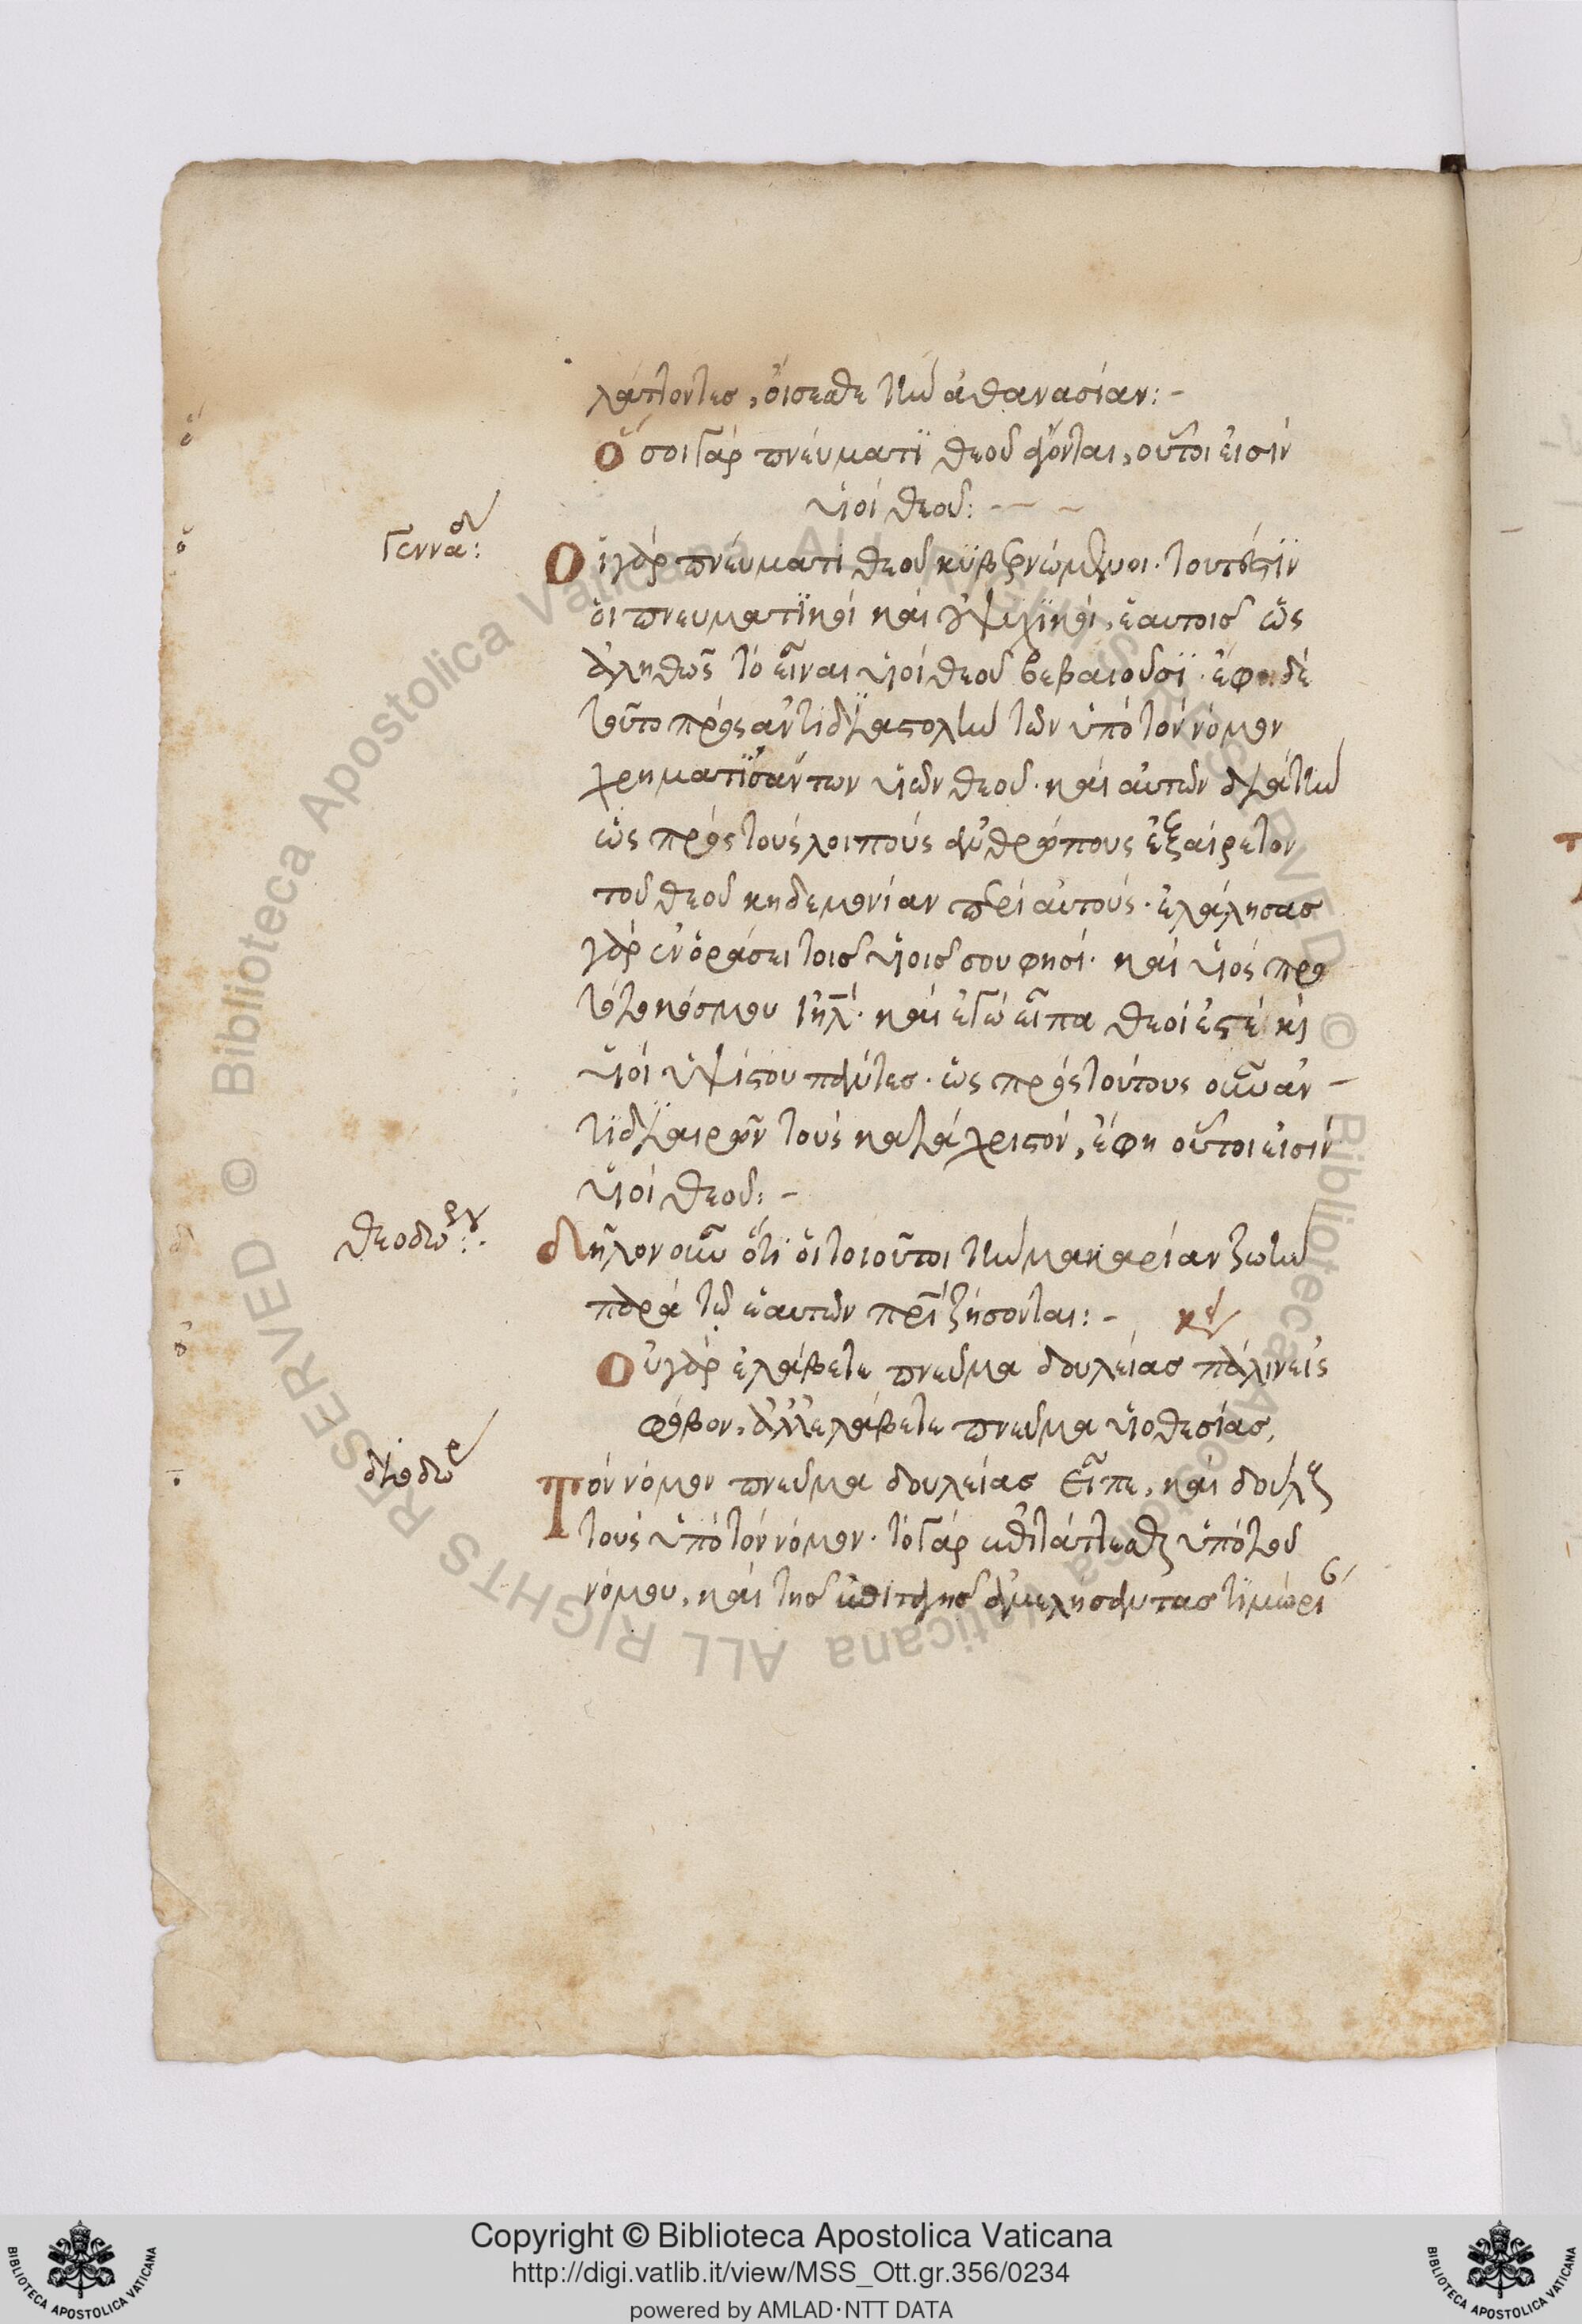 λάττοντες, ὄισεσθε τὴν ἀθανασίαν:-
Ὅσοι γὰρ πνέυματϊ θεοῦ ἄγονται, οὗτοι ἐισὶν
υἱοὶ θεοῦ:-
Γενναδ:
Οἱ γὰρ πνέυματι θεοῦ κϋβερνώμενοι· τουτέστϊν
ὁι πνευματϊκοὶ καὶ οὐ ψυχϊκοὶ, ἑαυτοις ὡς
ἀληθῶς τὸ εἶναι υἱοὶ θεοῦ βεβαιοῦσϊ· ἔφη δὲ
τοῦτο πρὸς ἀντιδιαστολὴν τῶν ὑπὸ τὸν νόμον
χρηματϊσάντων υἱῶν θεοῦ· καὶ αὐτῶν διὰ τὴν
ὡς πρὸς τοὺς λοιποὺς ἀνθρώπους ἐξαίρετον
τοῦ θεοῦ κηδεμονίαν περὶ αὐτούς· ἐλάλησας
γὰρ ἐν ὁράσει τοις υἱοις σου φησί· καὶ υἱὸς πρω
τότοκός μου ιηλ· καὶ ἐγὼ εἶπα θεοί ἐστὲ κὶ
υἱοὶ ὑψίστου πάντες· ὡς πρὸς τούτους οὖν ἀν-
τϊδιαιρῶν τοὺς κατὰ χριστόν, ἔφη οὗτοι ἐισὶν
υἱοὶ θεοῦ:-
θεοδωρου:.
Δῆλον οὖν ὅτϊ ὁι τοιοῦτοι τὴν μακαρίαν ζωὴν
παρὰ τῷ ἑαυτῶν πρὶ ζήσονται:-
Οὐ γὰρ ἐλάβετε πνεῦμα δουλείας πάλιν εἰς
φόβον, ἀλλ' ἐλάβετε πνεῦμα υἱοθεσίας,
διοδωρ
Τὸν νόμον πνεῦμα δουλείας εἶπε, καὶ δούλους
τοὺς ὑπὸ τὸν νόμον· τὸ γὰρ ἐπιτάττεσθαι ὑπὸ τοῦ
νόμου, καὶ της ἐπιταγης ἀμελήσαντας τϊμωρι
Copyright © Biblioteca Apostolica Vaticana
http://digi.vatlib.it/view/MSS_Ott.gr.356/0234
powered by AMLAD·NTT DATA